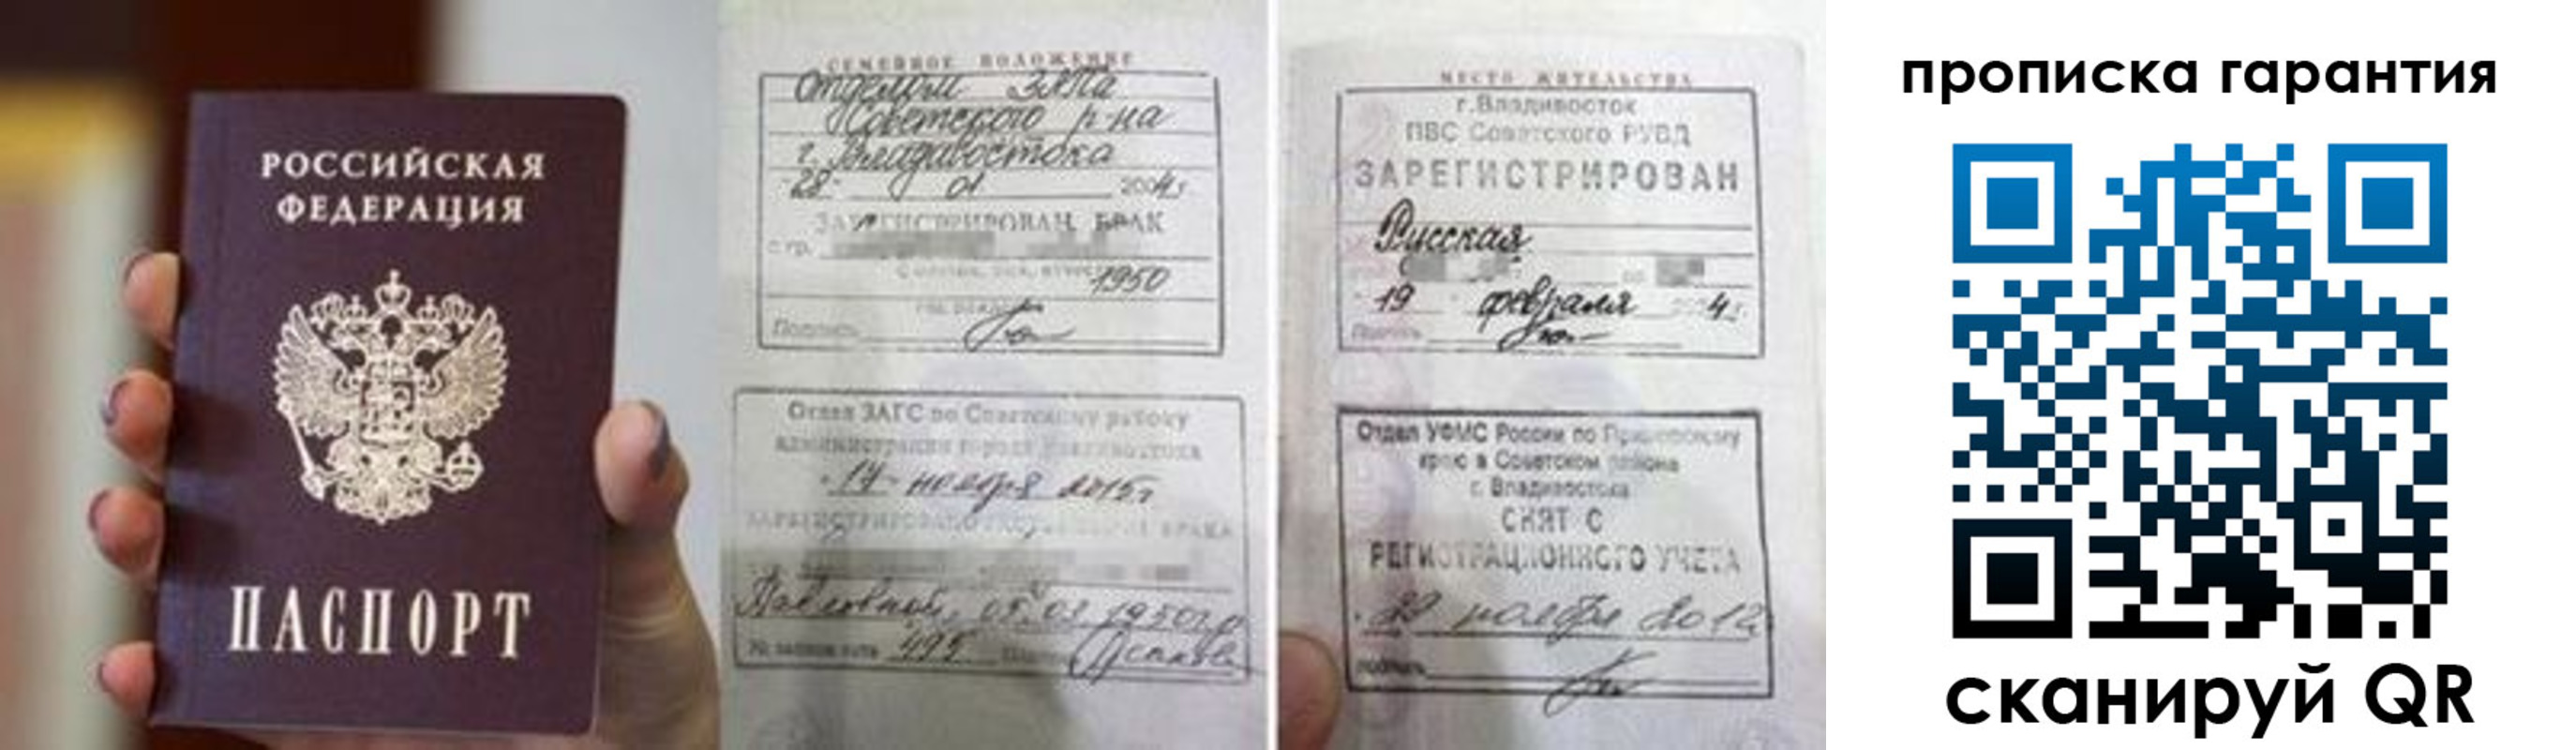 РОССИЙСКАЯ
ФЕДЕРАЦИЯ
ПАСПОРТ
СЕМЕЙНОЕ ПОЛОЖЕНИЕ
Отделом ЗАГСа
Советского р-на
г. Владивостока
"28" 01 2004 г.
ЗАРЕГИСТРИРОВАН БРАК
с гр.
1950
Подпись
Отдел ЗАГС по Советскому району
администрации города Владивостока
"17" ноября 2015г
Павловной, 05.03.1950г.р
№ записи акта 495
МЕСТО ЖИТЕЛЬСТВА
г.Владивосток
ПВС Советского РУВД
ЗАРЕГИСТРИРОВАН
Русская
19 февраля 4г
Подпись
Отдел УФМС России по Приморскому
краю в Советском районе
г. Владивостока
СНЯТ С
РЕГИСТРАЦИОННОГО УЧЕТА
ноября 2012
подпись
прописка гарантия
сканируй QR